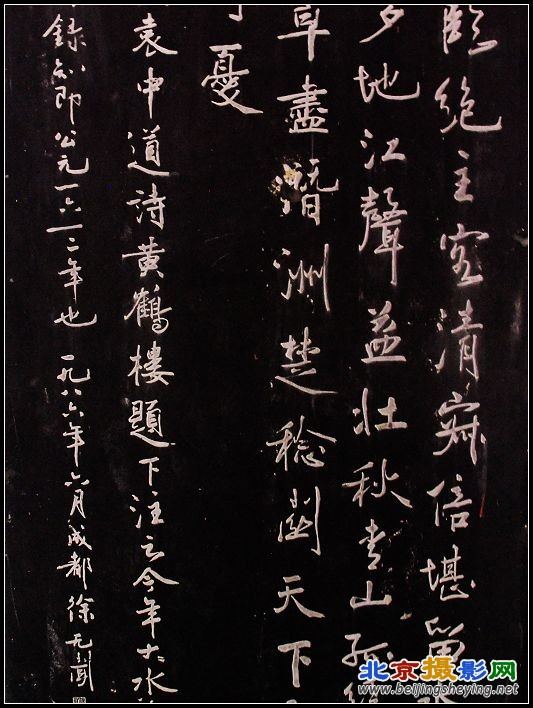 臨絶主客清寂倍堪留
地江聲益壯秋青山孤
盡潛洲楚稔關天下
憂
袁中道詩黄鶴樓題下注云今年大水
即公元一六一二年也 一九八六年六月成都徐无聞
北京摄影网
www.beijingsheying.net